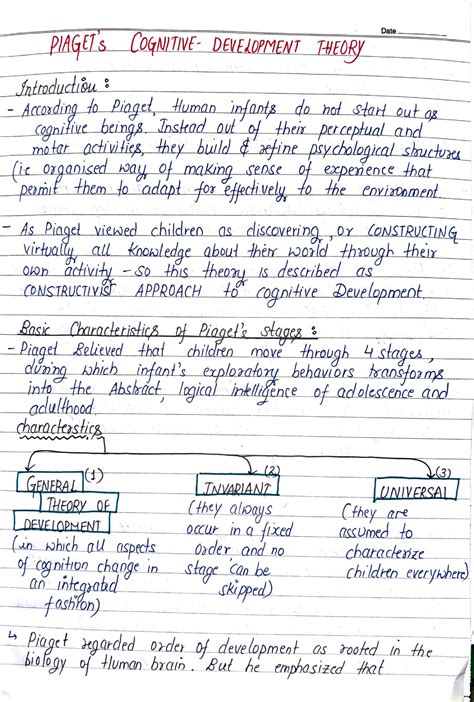 Date
PIAGET's COGNITIVE-DEVELOPMENT THEORY
Introduction :
- According to Piaget, Human infants do not start out as
cognitive beings. Instead out of their perceptual and
motar activities, they build & refine psychological structures
(ie organised way of making sense of experience that
permit them to adapt for effectively to the environment.
- As Piaget viewed children as discovering, or CONSTRUCTING
virtually all knowledge about their world through their
own activity - so this theory is described as
CONSTRUCTIVIST APPROACH to cognitive Development.
Basic Characteristics of Piaget's stages :
- Piaget Believed that children move through 4 stages,
during which infant's exploratory behaviors transforms
into the Abstract, logical intelligence of adolescence and
adulthood.
characterstics
(1) (2) (3)
GENERAL THEORY OF DEVELOPMENT
(in which all aspects
of cognition change in
an integrated
fashion)
INVARIANT
(they always
occur in a fixed
order and no
stage can be
skipped)
UNIVERSAL
(they are
assumed to
characterize
children everywhere)
↳ Piaget regarded order of development as rooted in the
biology of Human brain. But he emphasized that